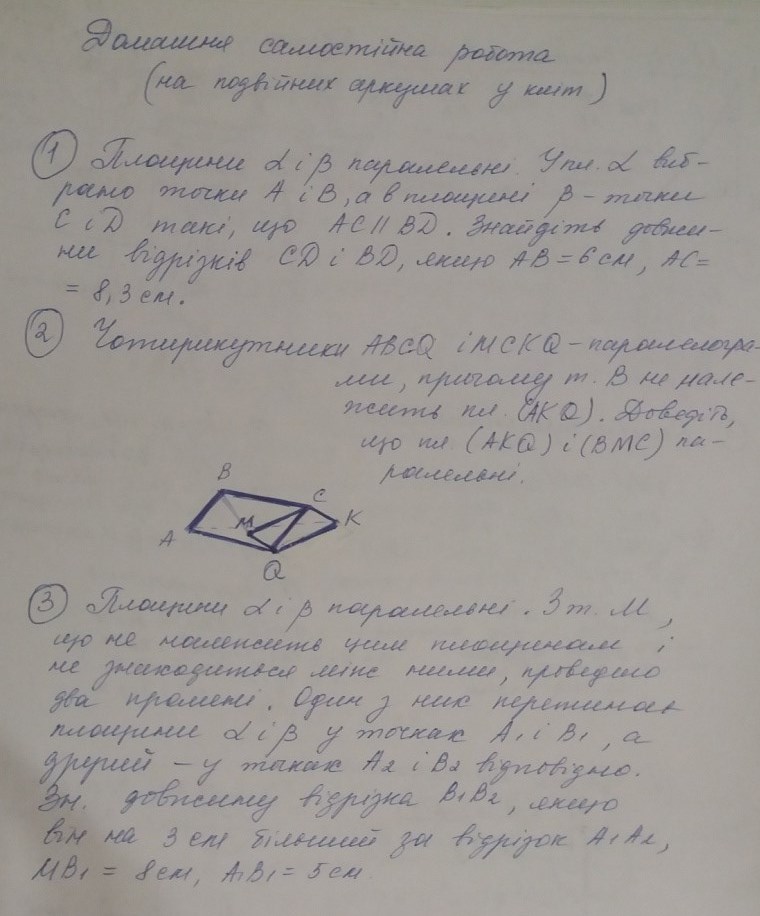 Домашня самостійна робота
(на подвійних аркушах у кліт)
1 Площини α і β паралельні. У пл. α виб-
рано точки А і В, а в площині β – точки
С і D такі, що AC || BD. Знайдіть довжи-
ни відрізків CD і BD, якщо AB = 6 см, AC =
= 8,3 см.
2 Чотирикутники ABCQ і MCKQ – паралелогра-
ми, причому т. В не нале-
жить пл. (AKQ). Доведіть,
що пл. (AKQ) і (BMC) па-
ралельні.
B
C
M
K
A
Q
3 Площини α і β паралельні. З т. М,
що не належить цим площинам і
не знаходиться між ними, проведено
два промені. Один з них перетинає
площини α і β у точках A1 і B1, а
другий – у точках A2 і B2 відповідно.
Зн. довжину відрізка B1B2, якщо
він на 3 см більший за відрізок A1A2,
MB1 = 8 см, A1B1 = 5 см